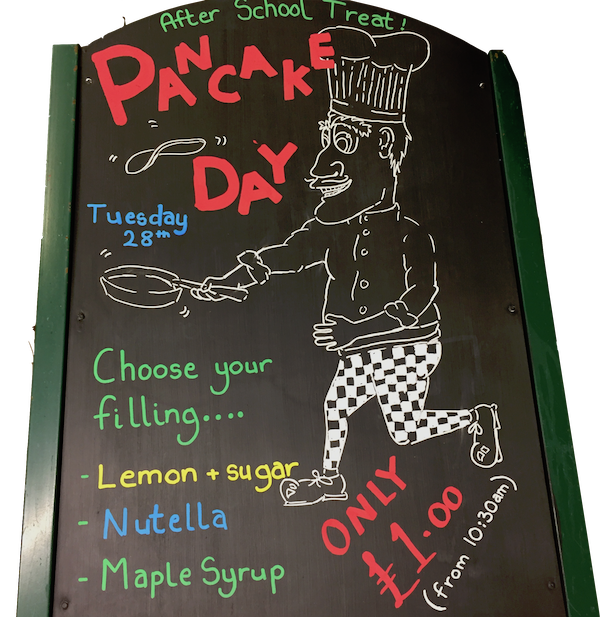 After School Treat!
PANCAKE
DAY
Tuesday
28th
Choose your
filling....
- Lemon + sugar
- Nutella
- Maple Syrup
ONLY
£1.00
(from 10:30am)